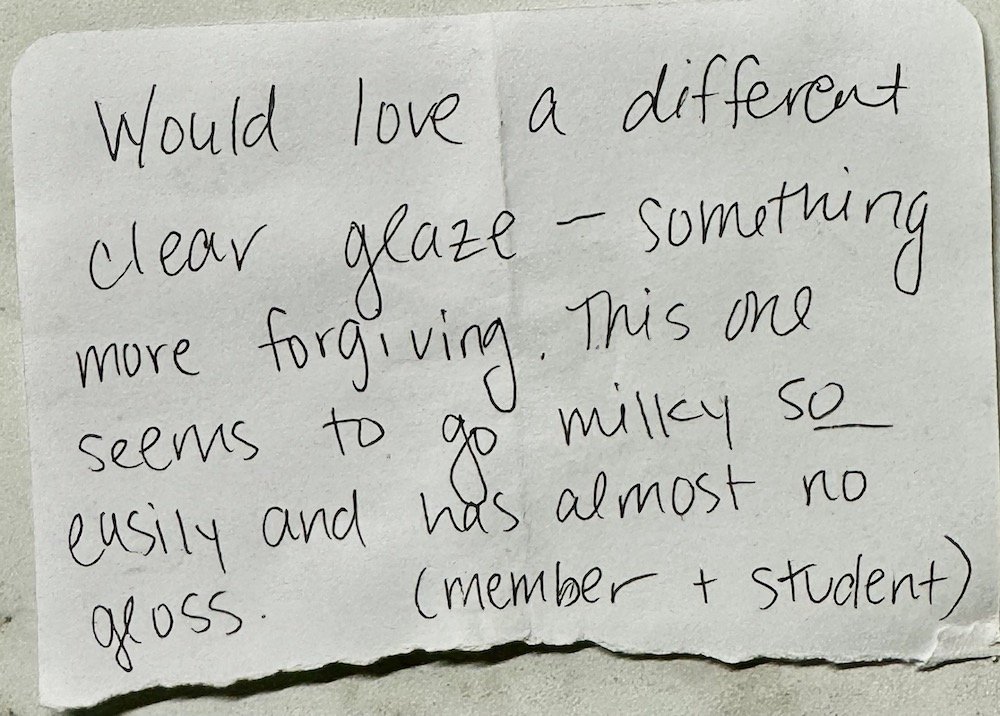 Would love a different
clear glaze - something
more forgiving. This one
seems to go milky so
easily and has almost no
gloss. (member + student)